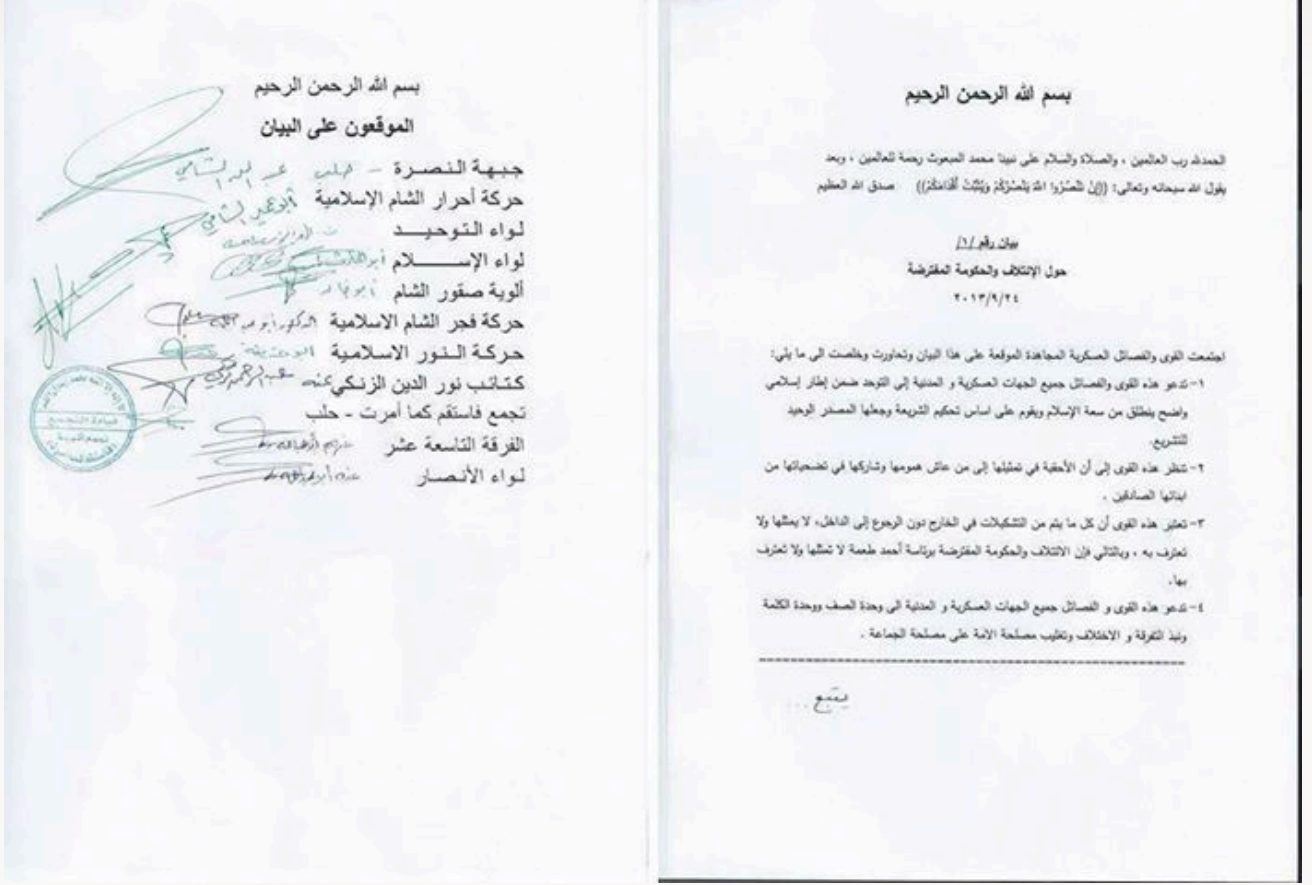 بسم الله الرحمن الرحيم
الحمدلله رب العالمين ، والصلاة والسلام على نبينا محمد المبعوث رحمة للعالمين ، وبعد
يقول الله سبحانه وتعالى: ((إِنْ تَنْصُرُوا اللهَ يَنْصُرْكُمْ وَيُثَبِّتْ أَقْدَامَكُمْ)) صدق الله العظيم
بيان رقم /١/
حول الإئتلاف والحكومة المفترضة
٢٠١٣/٩/٢٤
اجتمعت القوى والفصائل العسكرية المجاهدة الموقعة على هذا البيان وتحاورت وخلصت الى ما يلي:
١- تدعو هذه القوى والفصائل جميع الجهات العسكرية و المدنية إلى التوحد ضمن إطار إسلامي
واضح ينطلق من سعة الإسلام ويقوم على اساس تحكيم الشريعة وجعلها المصدر الوحيد
للتشريع.
٢- تنظر هذه القوى إلى أن الأحقية في تمثيلها إلى من عاش همومها وشاركها في تضحياتها من
ابنائها الصادقين .
٣- تعتبر هذه القوى أن كل ما يتم من التشكيلات في الخارج دون الرجوع إلى الداخل، لا يمثلها ولا
تعترف به ، وبالتالي فإن الائتلاف والحكومة المفترضة برئاسة أحمد طعمة لا تمثلها ولا تعترف
بها.
٤- تدعو هذه القوى و الفصائل جميع الجهات العسكرية و المدنية الى وحدة الصف ووحدة الكلمة
ونبذ التفرقة و الاختلاف وتغليب مصلحة الامة على مصلحة الجماعة .
يتبع ...
بسم الله الرحمن الرحيم
الموقعون على البيان
جبهة النصرة - حلب عبد الله الشامي
حركة أحرار الشام الإسلامية
لواء التوحيد
لواء الإسلام
ألوية صقور الشام
حركة فجر الشام الاسلامية
حركة النور الاسلامية
كتائب نور الدين الزنكي عنه
تجمع فاستقم كما أمرت - حلب
الفرقة التاسعة عشر
لواء الأنصار